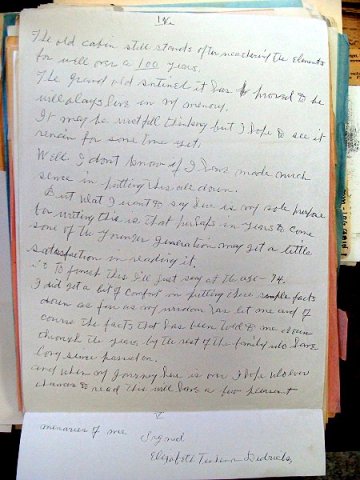 The old cabin still stands after weathering the elements
for well over a 100 years.
The grand old sentinel it has proved to be
will always live in my memory.
It may be wistfull thinking but I hope to see it
remain for some time yet.
Well I dont know if I have made much
sense in putting this all down.
But what I want to say here is my sole purpose
for writing this is that perhaps in years to come
some of the younger generation may get a little
satisfaction in reading it.
to finish this I'll just say at the age - 74.
I did get a lot of comfort in putting these simple facts
down as far as my wisdom has let me and of
course the facts that has been told to me down
through the years by the rest of the family who have
long since passed on.
and when my journey here is over I hope who ever
chances to read this will have a few pleasant
memories of me
Signed
Elizabeth